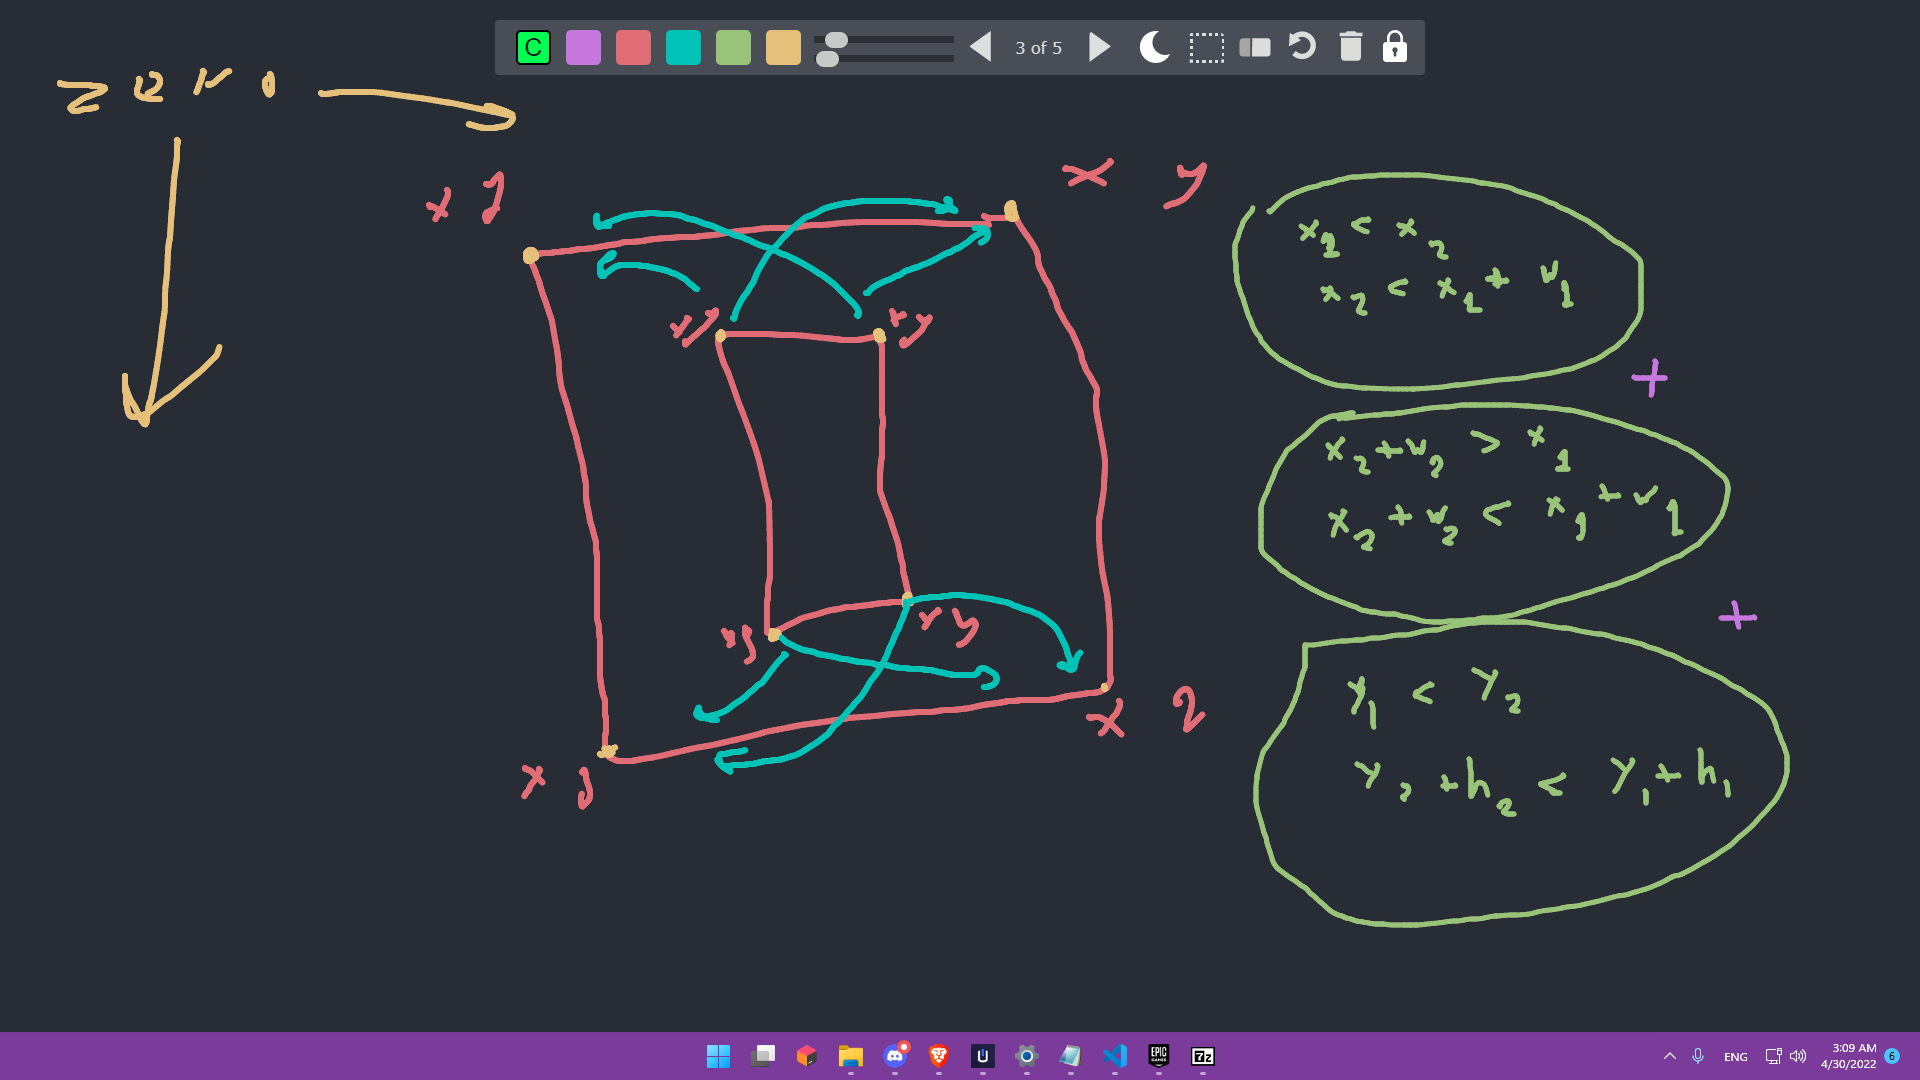 C
3 of 5
zero
x y
x y
x y
x y
x y
x y
x y
x 2
x1 < x2
x2 < x1 + w1
+
x2 + w2 > x1
x2 + w2 < x1 + w1
+
y1 < y2
y2 + h2 < y1 + h1
ENG
3:09 AM
4/30/2022
6
EPIC GAMES
7z